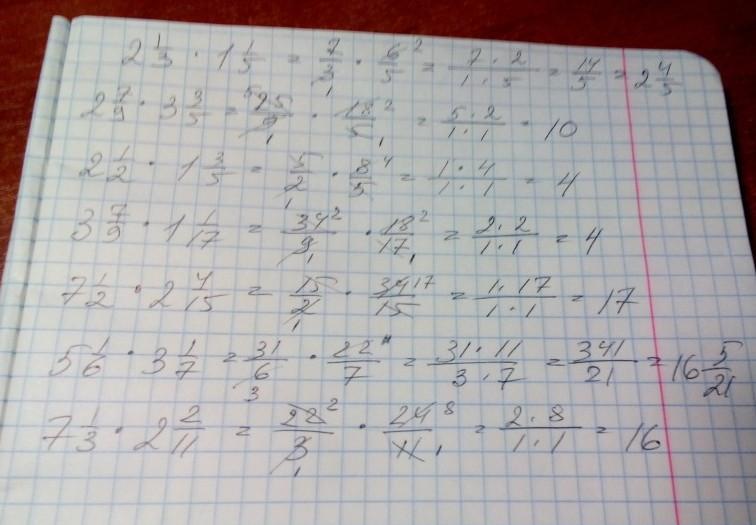 2 1/3 · 1 1/5 = 7/3 1 · 6 2/5 = 7·2/1·5 = 14/5 = 2 4/5
2 7/9 · 3 3/5 = 5 25/9 1 · 18 2/5 1 = 5·2/1·1 = 10
2 1/2 · 1 3/5 = 5/2 1 · 8 4/5 = 1·4/1·1 = 4
3 7/9 · 1 1/17 = 34 2/9 1 · 18 2/17 1 = 2·2/1·1 = 4
7 1/2 · 2 4/15 = 15/2 1 · 34 17/15 = 1·17/1·1 = 17
5 1/6 · 3 1/7 = 31/6 3 · 22 11/7 = 31·11/3·7 = 341/21 = 16 5/21
7 1/3 · 2 2/11 = 22 2/3 1 · 24 8/11 1 = 2·8/1·1 = 16